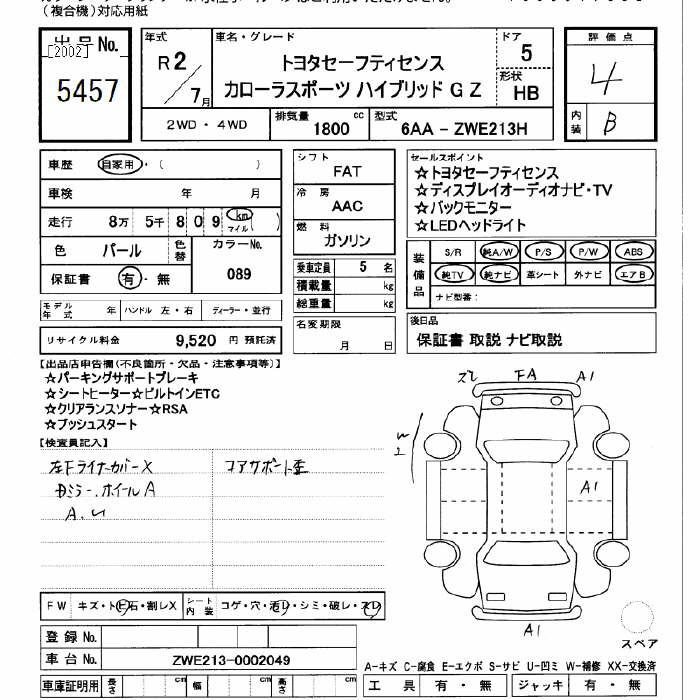 （複合機）対応用紙
出品No.
[2002]
5457
年式
R2/7月
車名・グレード
トヨタセーフティセンス
カローラスポーツ ハイブリッド G Z
ドア
5
形状
HB
評価点
4
内装
B
2WD ・ 4WD
排気量
1800 cc
型式
6AA - ZWE213H
車歴 自家用・（ ）
車検 年 月
走行 8万 5千 8 0 9 km マイル( )
色 パール
色替
カラーNo.
089
保証書 有・無
モデル年式 年
ハンドル 左・右
ディーラー・並行
リサイクル料金 9,520 円 預託済
シフト
FAT
冷房
AAC
燃料
ガソリン
乗車定員 5 名
積載量 kg
総重量 kg
名変期限
月 日
セールスポイント
☆トヨタセーフティセンス
☆ディスプレイオーディオナビ・TV
☆バックモニター
☆LEDヘッドライト
装備品
S/R 純A/W P/S P/W ABS
純TV 純ナビ 革シート 外ナビ エアB
ナビ型番：
後日品
保証書 取説 ナビ取説
【出品店申告欄(不良箇所・欠品・注意事項等)】
☆パーキングサポートブレーキ
☆シートヒーター☆ビルトインETC
☆クリアランスソナー☆RSA
☆プッシュスタート
【検査員記入】
左Fライナーカバー X
Dミラー.ホイールA
コアサポート歪
ズレ FA A1
A1
A1
スペア
FW キズ・トビ石・割レX
シート内装 コゲ・穴・汚レ・シミ・破レ・スレ
登録No.
車台No. ZWE213-0002049
車庫証明用 長さ cm 幅 cm 高さ cm
A-キズ C-腐食 E-エクボ S-サビ U-凹ミ W-補修 XX-交換済
工具 有・無 ジャッキ 有・無